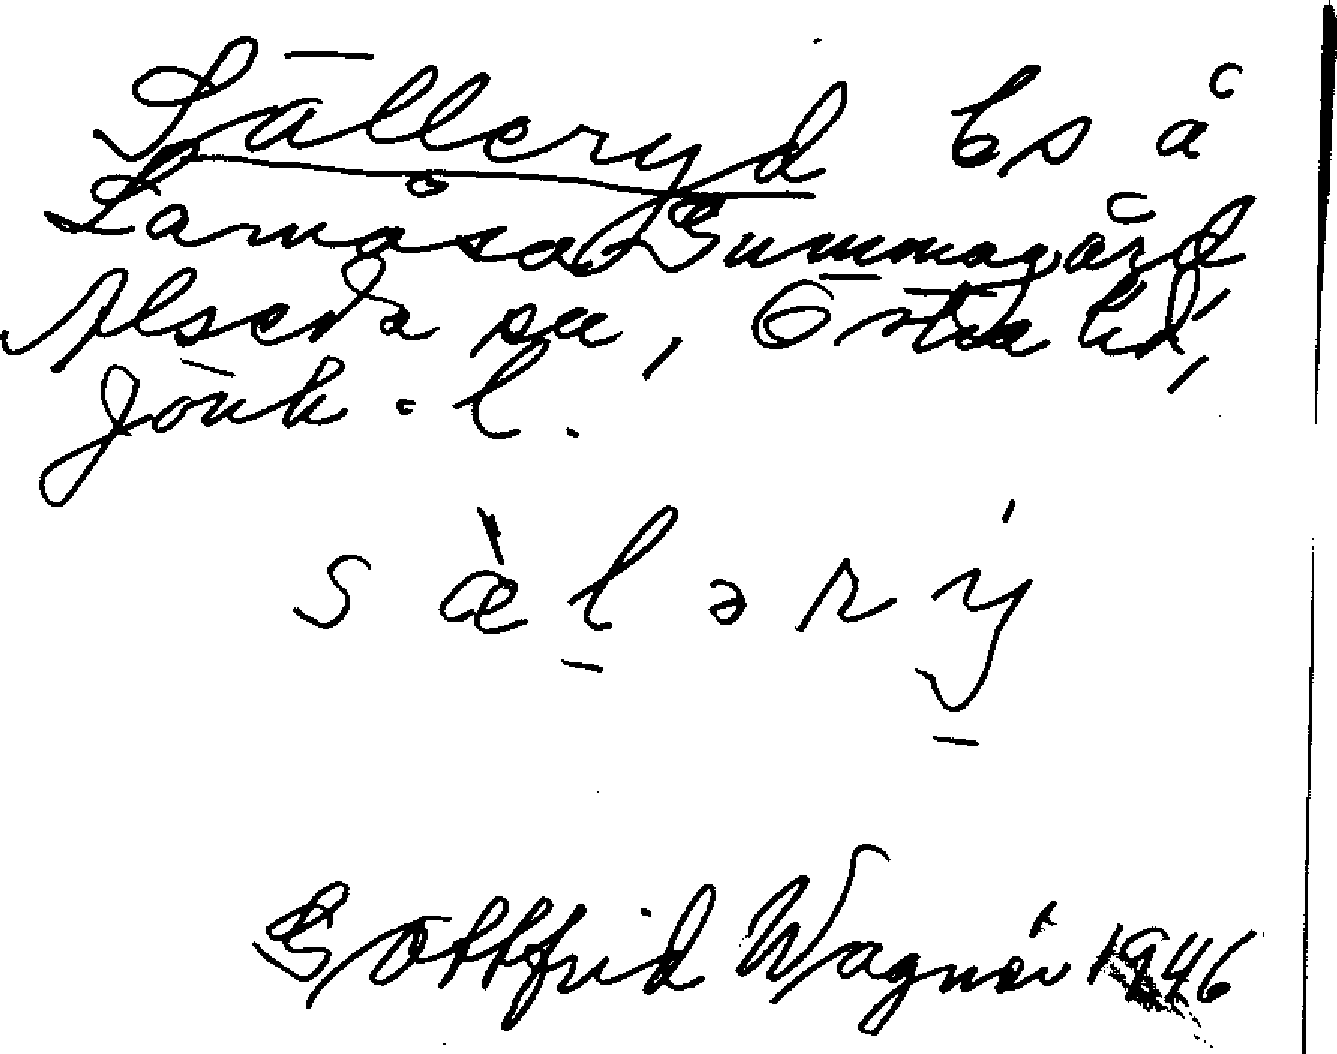 Sälleryd bs å
Larnåsa Gummagård
Alseda sn, Östra hd,
Jönk. l.
sæ̀lərý
Gottfrid Wagnér 1946